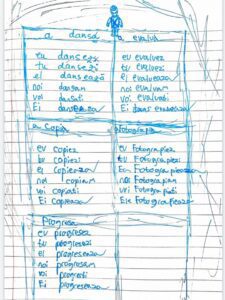 a dansa
tu dansezi
tu dansezi
el dansează
noi dansam
voi dansati
Ei danseaza
a evalua
eu evaluez
tu evaluezi
el evalueaza
noi evaluam
voi evaluati
Ei evalueaza
a copia
eu copiez
tu copiezi
el copieaza
noi copiam
voi copiati
Ei copieaza
fotografia
eu Fotografiez
tu Fotografiezi
el Fotografieaza
noi Fotografiam
voi Fotografiati
Ei Fotografieaza
Progresa
eu progresez
tu progresezi
el progreseaza
noi progresam
voi progresati
Ei progreseaza